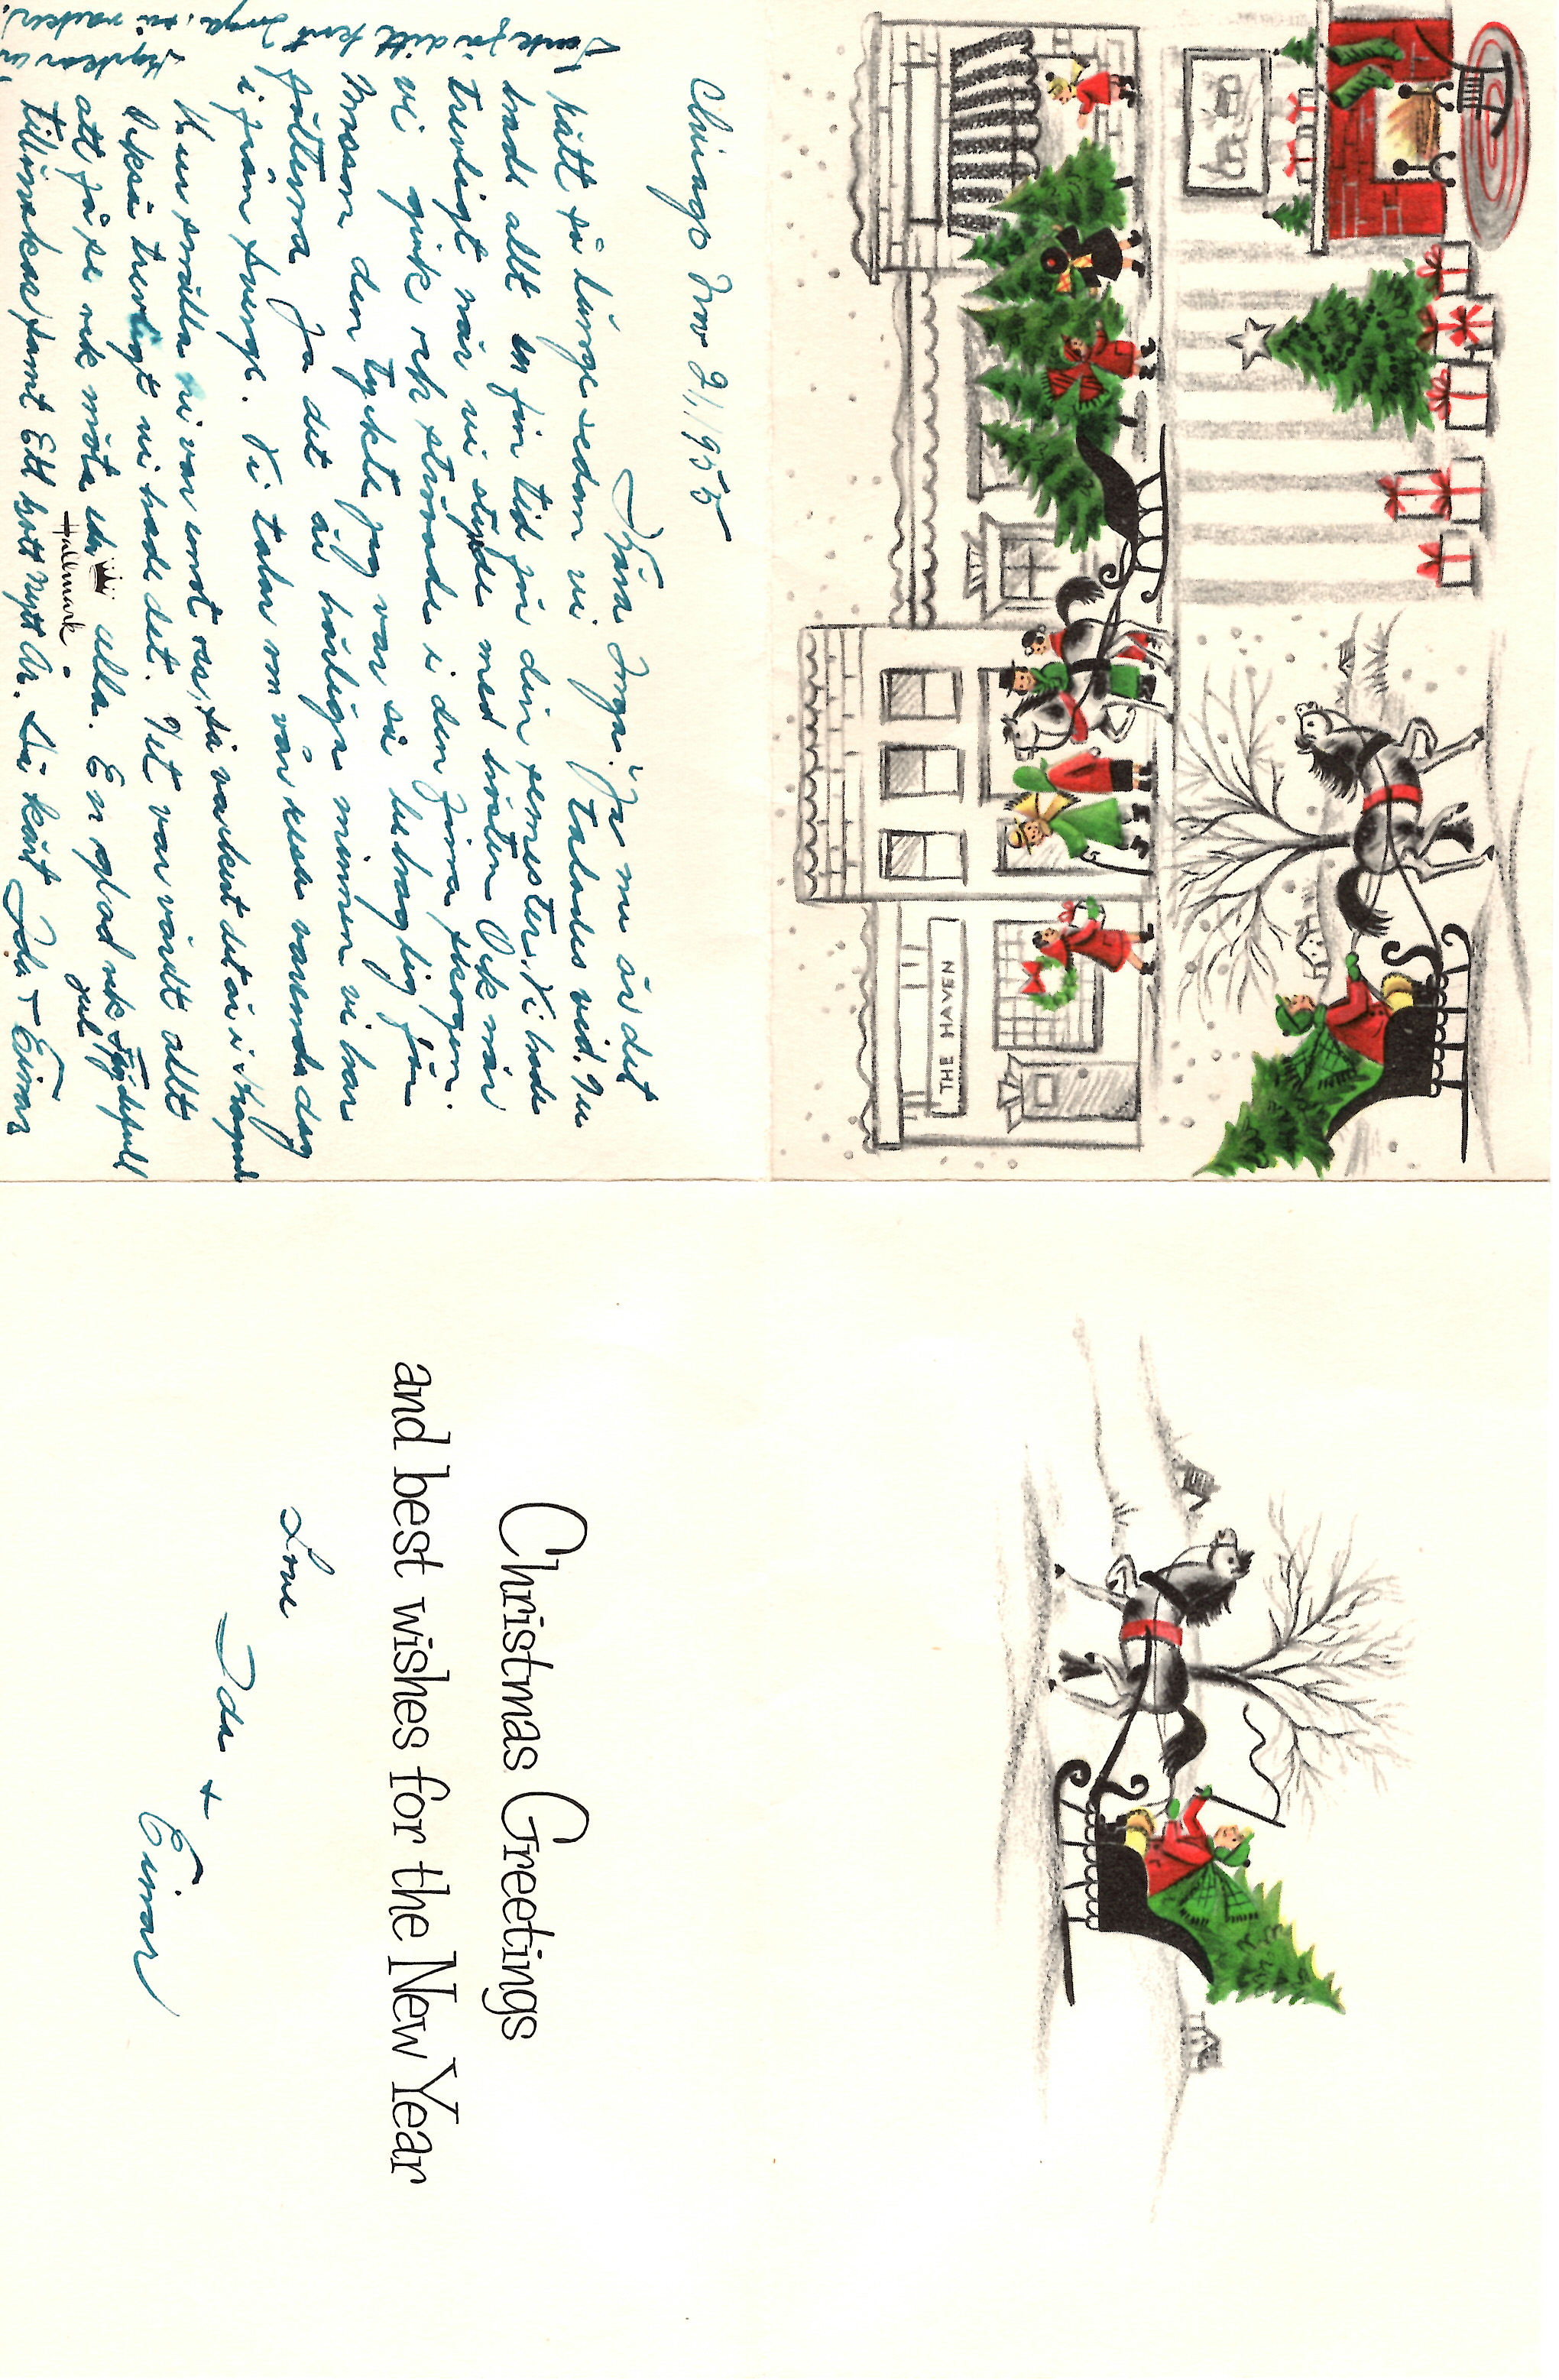 Chicago Nov 21, 1955
Kära Inga! Ja nu är det
rätt så länge sedan vi talades vid. Nu
hade allt en fin tid för din semester. Vi hade
trevligt när vi styrde med hösten Och när
vi gick och strövade i den fina skogen.
Mossan den tyckte jag var så behaglig för
fötterna Ja det är härliga minnen vi har
ifrån Sverge. Vi talar om vår resa varenda dag
Hur snälla ni var emot oss, så vackert det är i Skogand
Också trevligt vi hade det. Det var värdt allt
att få se och möta eder alla. En glad och fröjdefull
jul
tillönskas samt Ett Gott Nytt År. Så känt Ida + Einar
Tack för ditt kort Inga, så vackert.
Kyrkan in
Hallmark
THE HAVEN
Christmas Greetings
and best wishes for the New Year
Love
Ida +
Einar